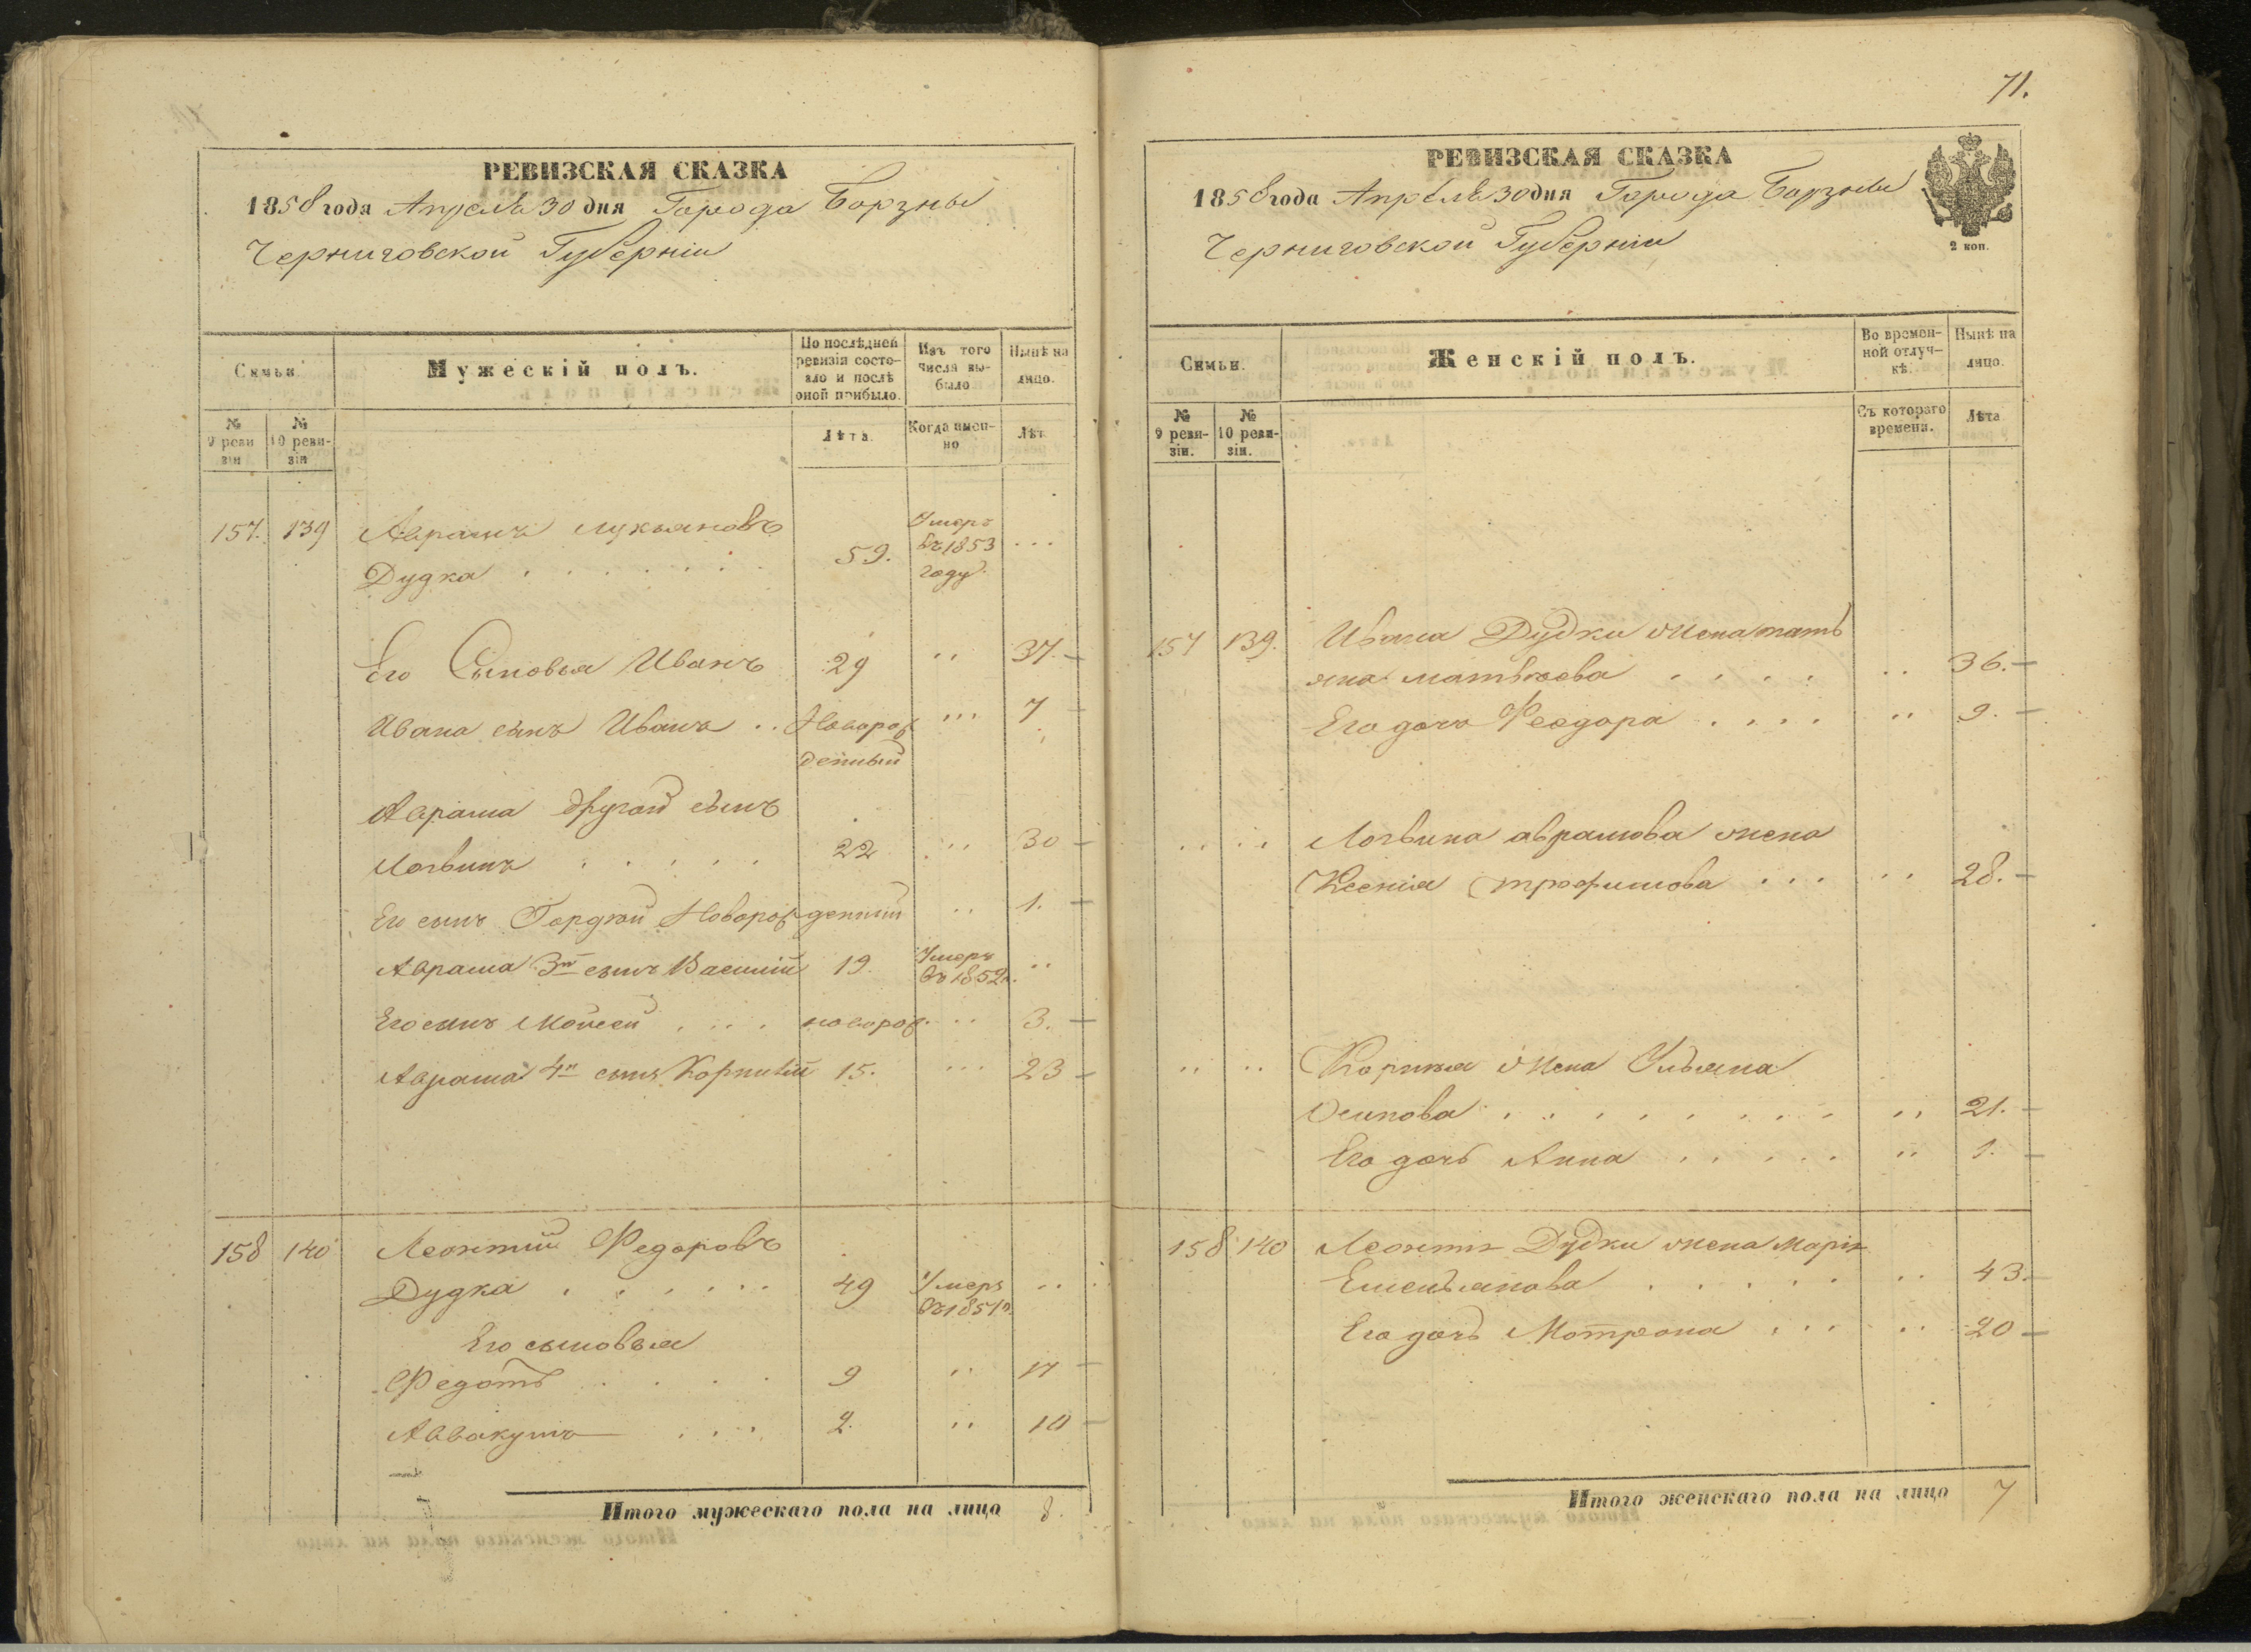 РЕВИЗСКАЯ СКАЗКА
1858 года Апреля 30 дня Города Борзны
Черниговской Губерніи
Семьи.
Мужескій полъ.
По послѣдней ревизіи состояло и послѣ оной прибыло.
Изъ того числа выбыло
Нынѣ на лицо.
№ 9 ревизіи
№ 10 ревизіи
Лѣта.
Когда именно
Лѣт.
157. 139 Аврамъ Лукьяновъ
Дудка 59. Умеръ въ 1853 году.
Его Сыновья Иванъ 29 37.
Ивана сынъ Иванъ Новорожденный 7
Аврама другой сынъ
Логвинъ 22 30
Его сынъ Гордѣй Новорожденный 1.
Аврама 3й сынъ Василій 19. Умеръ въ 1852 г.
Его сынъ Мойсей новорож. 3.
Аврама 4й сынъ Корнилій 15. 23
158 140 Леонтій Федоровъ
Дудка 49 Умеръ въ 1851 г.
Его сыновья
Федотъ 9 17
Аввакумъ 2. 10
Итого мужескаго пола на лицо 8.
71.
РЕВИЗСКАЯ СКАЗКА
1858 года Апрѣля 30 дня Города Борзны
Черниговской Губерніи
2 коп.
Семьи.
Женскій полъ.
Во временной отлучкѣ.
Нынѣ на лицо.
№ 9 ревизіи.
№ 10 ревизіи.
Съ котораго времени.
Лѣта
157 139. Ивана Дудки жена Тать
яна Матвѣева 36.
Его дочь Феодора 9.
Логвина Аврамова жена
Ксенія Трофимова 28.
Корнѣя жена Ульяна
Осипова 21.
Его дочь Анна 1.
158 140 Леонтія Дудки жена Марія
Емельянова 43.
Его дочь Мотрона 20
Итого женскаго пола на лицо 7